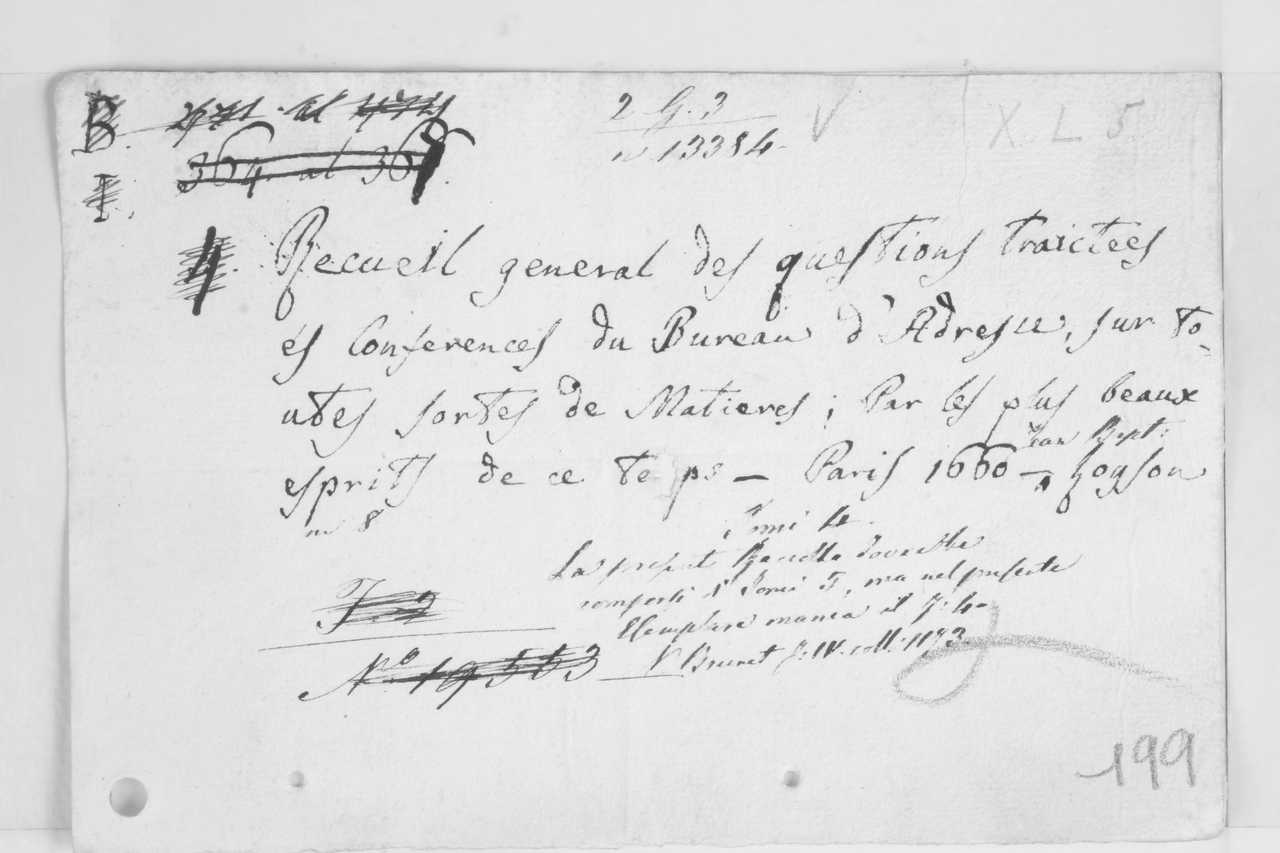 B.
2 G. 3 V X. L 5
n 13384.
364. al 368.
I.
4. Recueil general des questions traictees
és Conferences du Bureau d'Adresse, sur to-
utes sortes de Matieres; Par les plus beaux
esprits de ce te ps — Paris 1660 — Jean Bapt. Loyson
in 8
Tomi 4.
La presente Raccolta dovrebbe
comporsi di Tomi 5, ma nel presente
Esemplare manca il T. 4.
V. Brunet T. IV. coll. 1173
N.º 19553
199